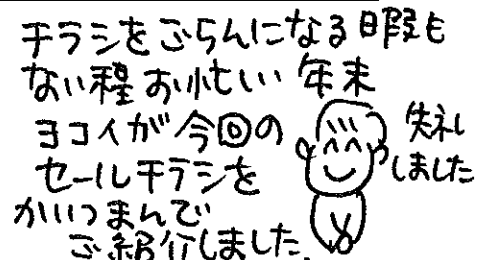 チラシをごらんになる日暇も
ない程お忙しい年末
ヨコイが今回の
セールチラシを
かいつまんで
ご紹介しました。
失礼
しました